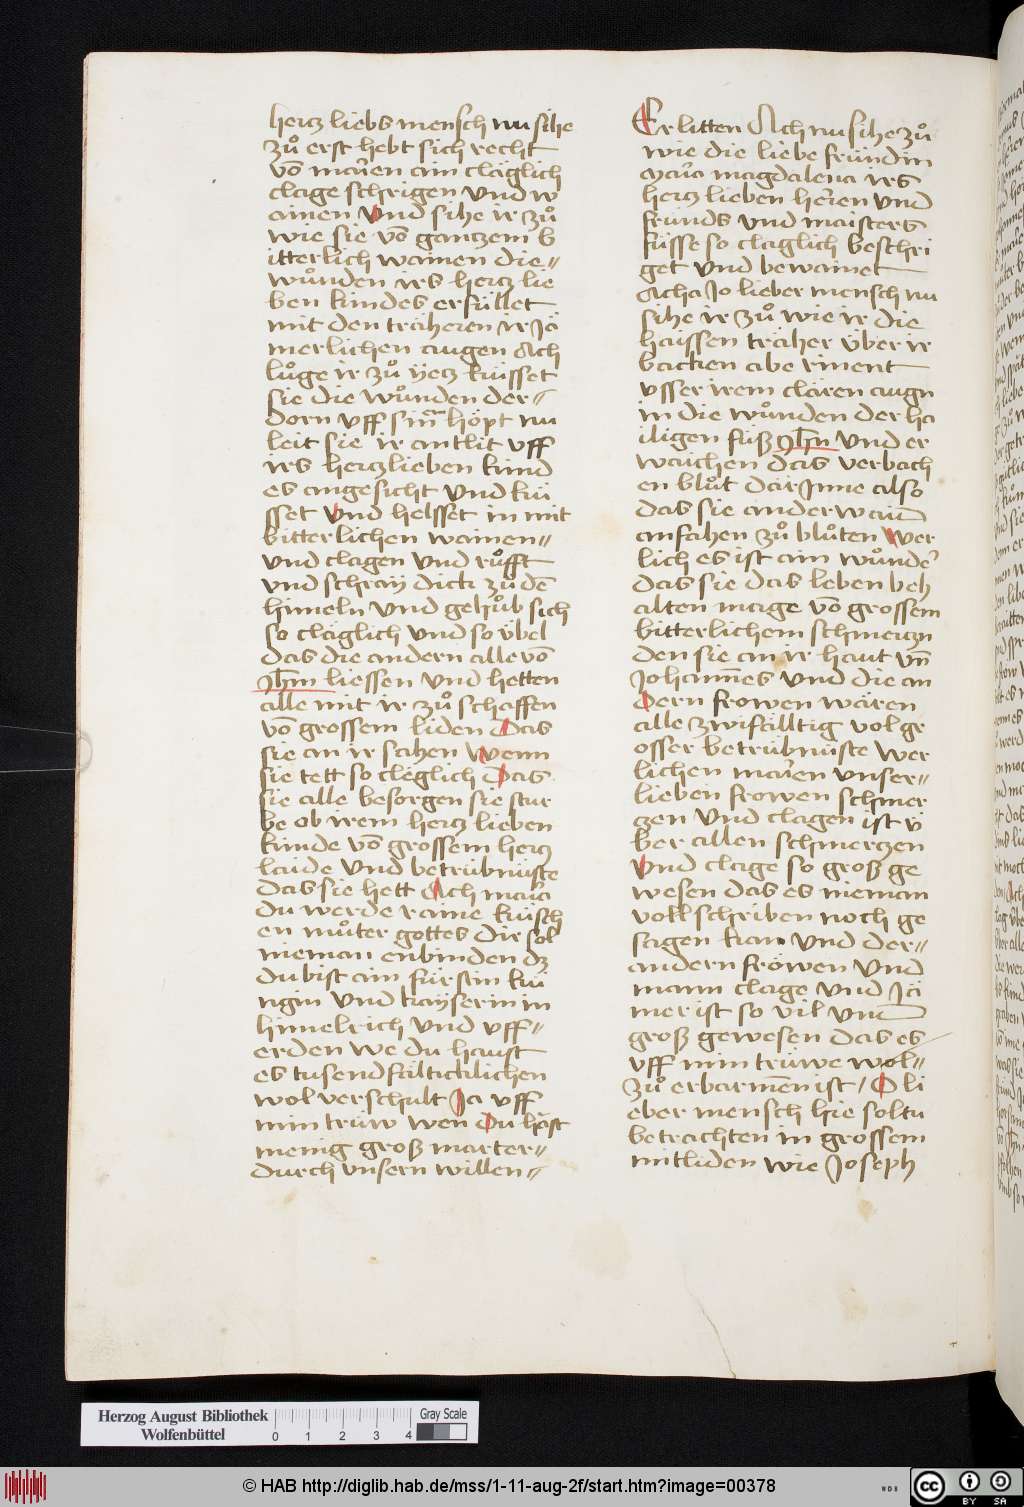 hercz liebs mensch nu sihe
zů erst hebt sich recht
võ marien ain cläglich
clage schrigen vnd w
ainen Vnd sihe ir zů
wie sie võ gantzem b
itterlich wainen die
wůnden irs hercz lie
ben kindes erfüllet
mit den träheren ir Jä
merlichen augen Ach
lůge ir zů yecz küsset
sie die wůnden der
dorn vff sinē höpt nu
leit sie ir antlit vff
irs herczlieben kind
es angesicht vnd kü
sset Vnd helsset in mit
bitterlichen wainen
vnd clagen vnd růfft
vnd schray dick zů dē
himeln vnd gehůb sich
so cläglich vnd so vbel
das die andern alle võ
Jhm liessen vnd hetten
alle mit ir zů schaffen
võ grossem liden Das
sie an ir sahen Wenn
sie tett so cleglich Das
sie alle besorgen sie stur
be ob irem hercz lieben
kinde võ grossem hercz
laide vnd betrübnüste
das sie hett Ach maria
du werde raine küsch
en můter gottes dir sol
nieman enbinden dz
du bist ain fürstin kü
ngin vnd kayserin in
himelrich vnd vff
erden we du haust
es tusendfälticklichen
wol verschult Ja vff
min trüw wen Du häst
menig groß marter
durch vnsern willen
Erlitten Ach nu sihe zů
wie die liebe fründin
maria magdalena irs
hercz lieben herren vnd
fründs vnd maisters
füsse so claglich beschri
get vnd bewainet
Acha Jo lieber mensch nu
sihe ir zů wie ir die
haissen träher über ir
backen abe rinent
vsser irem clären augn
in die wůnden der ha
iligen füß Jhm vnd er
waichen das verbach
en blůt dar Jnne also
das sie anderwaid
anfahen zů blůten Wer
lich es ist ain wůnder
das sie das leben beh
alten mage võ grossem
bitterlichem schmerczn
den sie an ir haut vnd
Johannes vnd die an
Dern frowen wären
alle zwifälltig vol gr
osser betrübnüste wer
lichen marien vnser
lieben frowen schmer
czen vnd clagen ist ü
ber allen schmerczen
Vnd clage so groß ge
wesen das es nieman
voll schriben noch ge
sagen kan vnd der
andern fröwen vnd
mann clage vnd Ja
mer ist so vil vnd
groß gewesen das es
vff min trüwe wol
zů erbarmen ist / O li
eber mensch hie soltu
betrachten in grossem
mitliden wie Joseph
Herzog August Bibliothek
Wolfenbüttel
0 1 2 3 4
Gray Scale
© HAB http://diglib.hab.de/mss/1-11-aug-2f/start.htm?image=00378
WDB
CC BY SA